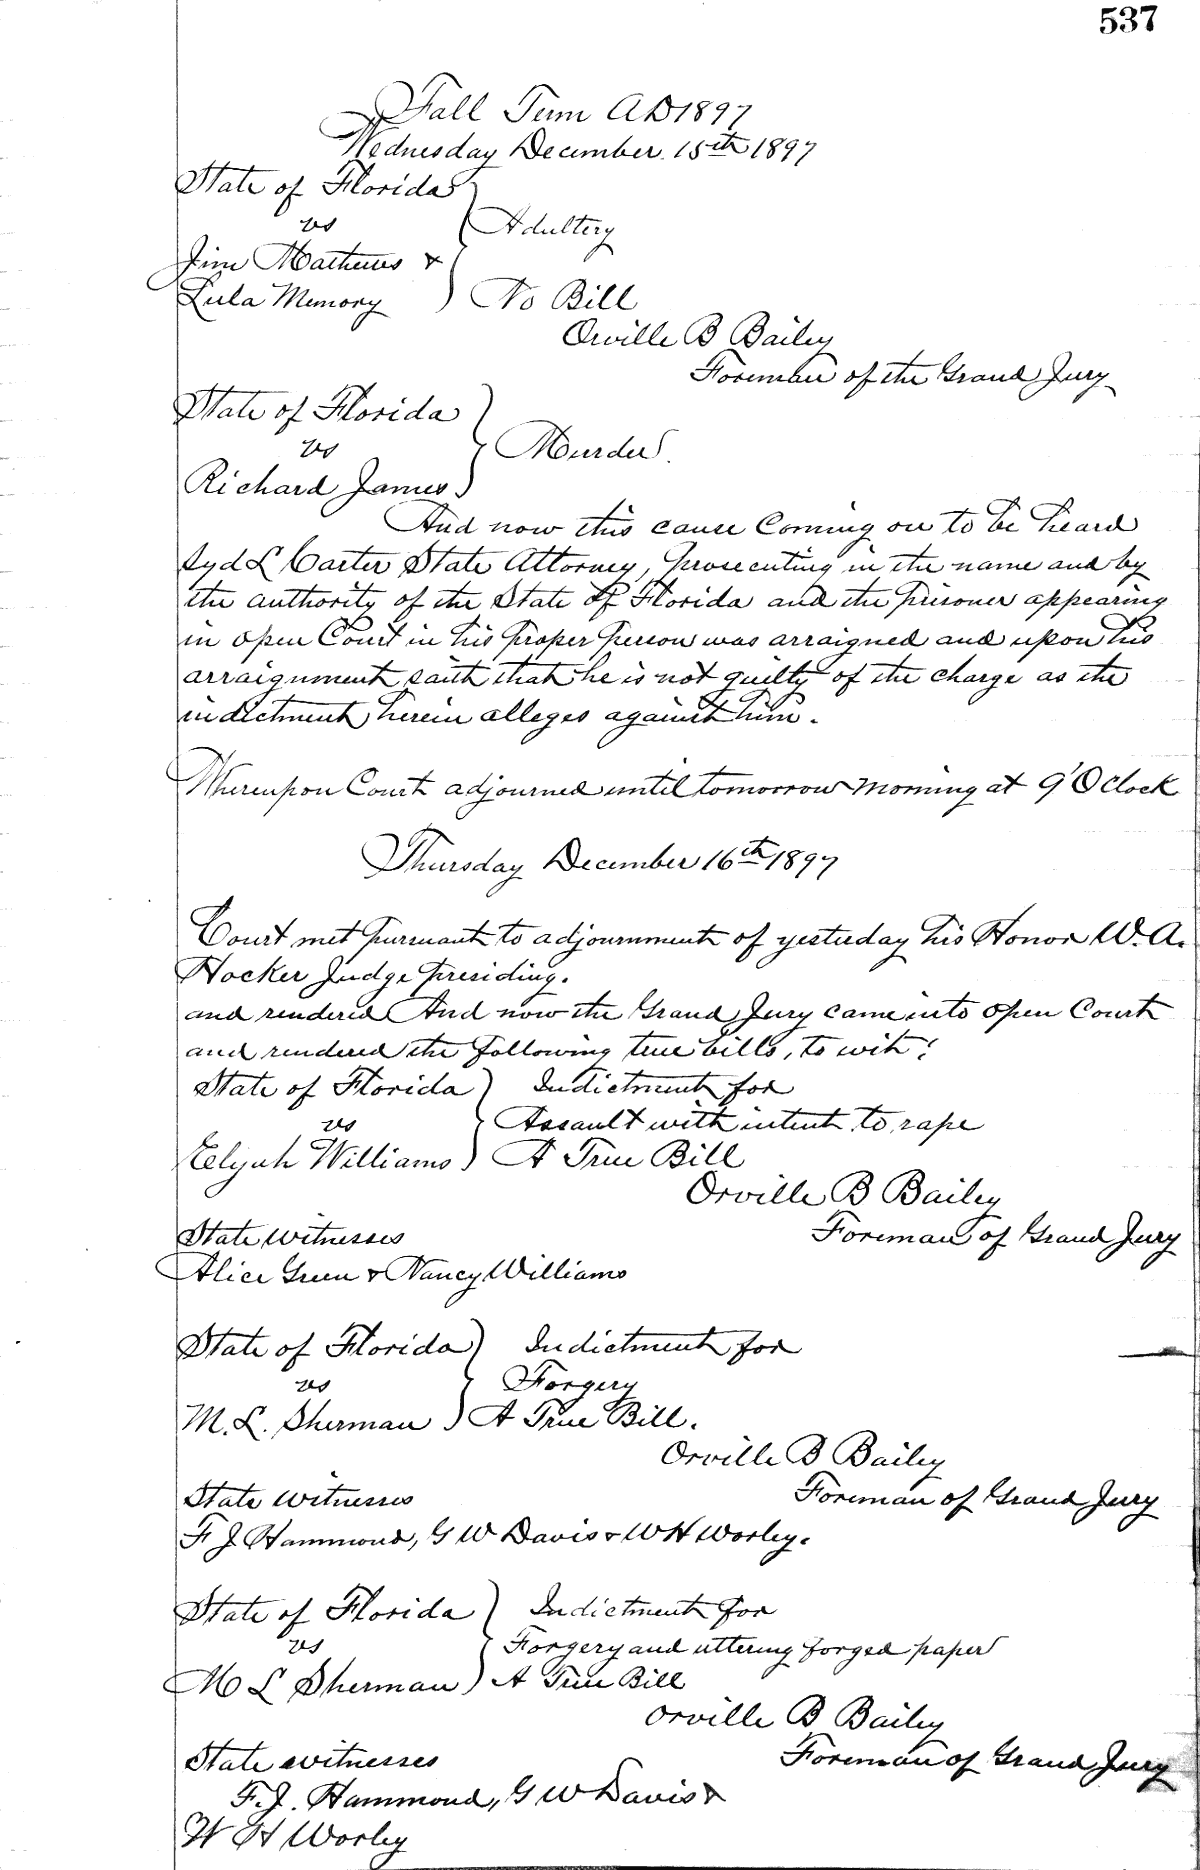 537
Fall Term AD 1897
Wednesday December 15th 1897
State of Florida
vs
Adultery
Jim Mathews &
Lula Memory
No Bill
Orville B Bailey
Foreman of the Grand Jury
State of Florida
vs
Murder.
Richard James
And now this cause Coming on to be heard
Syd L Carter State Attorney, prosecuting in the name and by
the authority of the State of Florida and the prisoner appearing
in open Court in his proper person was arraigned and upon his
arraignment saith that he is not guilty of the charge as the
indictment herein alleges against him.
Whereupon Court adjourned until tomorrow morning at 9 O'Clock
Thursday December 16th 1897
Court met pursuant to adjournment of yesterday his Honor W. A.
Hocker Judge presiding.
and rendered And now the Grand Jury came into open Court
and rendered the following true bills, to wit:
State of Florida
Indictment for
vs
Assault with intent to rape
Elijah Williams
A True Bill
Orville B Bailey
State witnesses
Foreman of Grand Jury
Alice Green & Nancy Williams
State of Florida
Indictment for
vs
Forgery
M. L. Sherman
A True Bill.
Orville B Bailey
State witnesses
Foreman of Grand Jury
F J Hammond, G W Davis & W H Worley.
State of Florida
Indictment for
vs
Forgery and uttering forged paper
M L Sherman
A True Bill
Orville B Bailey
State witnesses
Foreman of Grand Jury
F. J. Hammond, G W Davis &
W H Worley